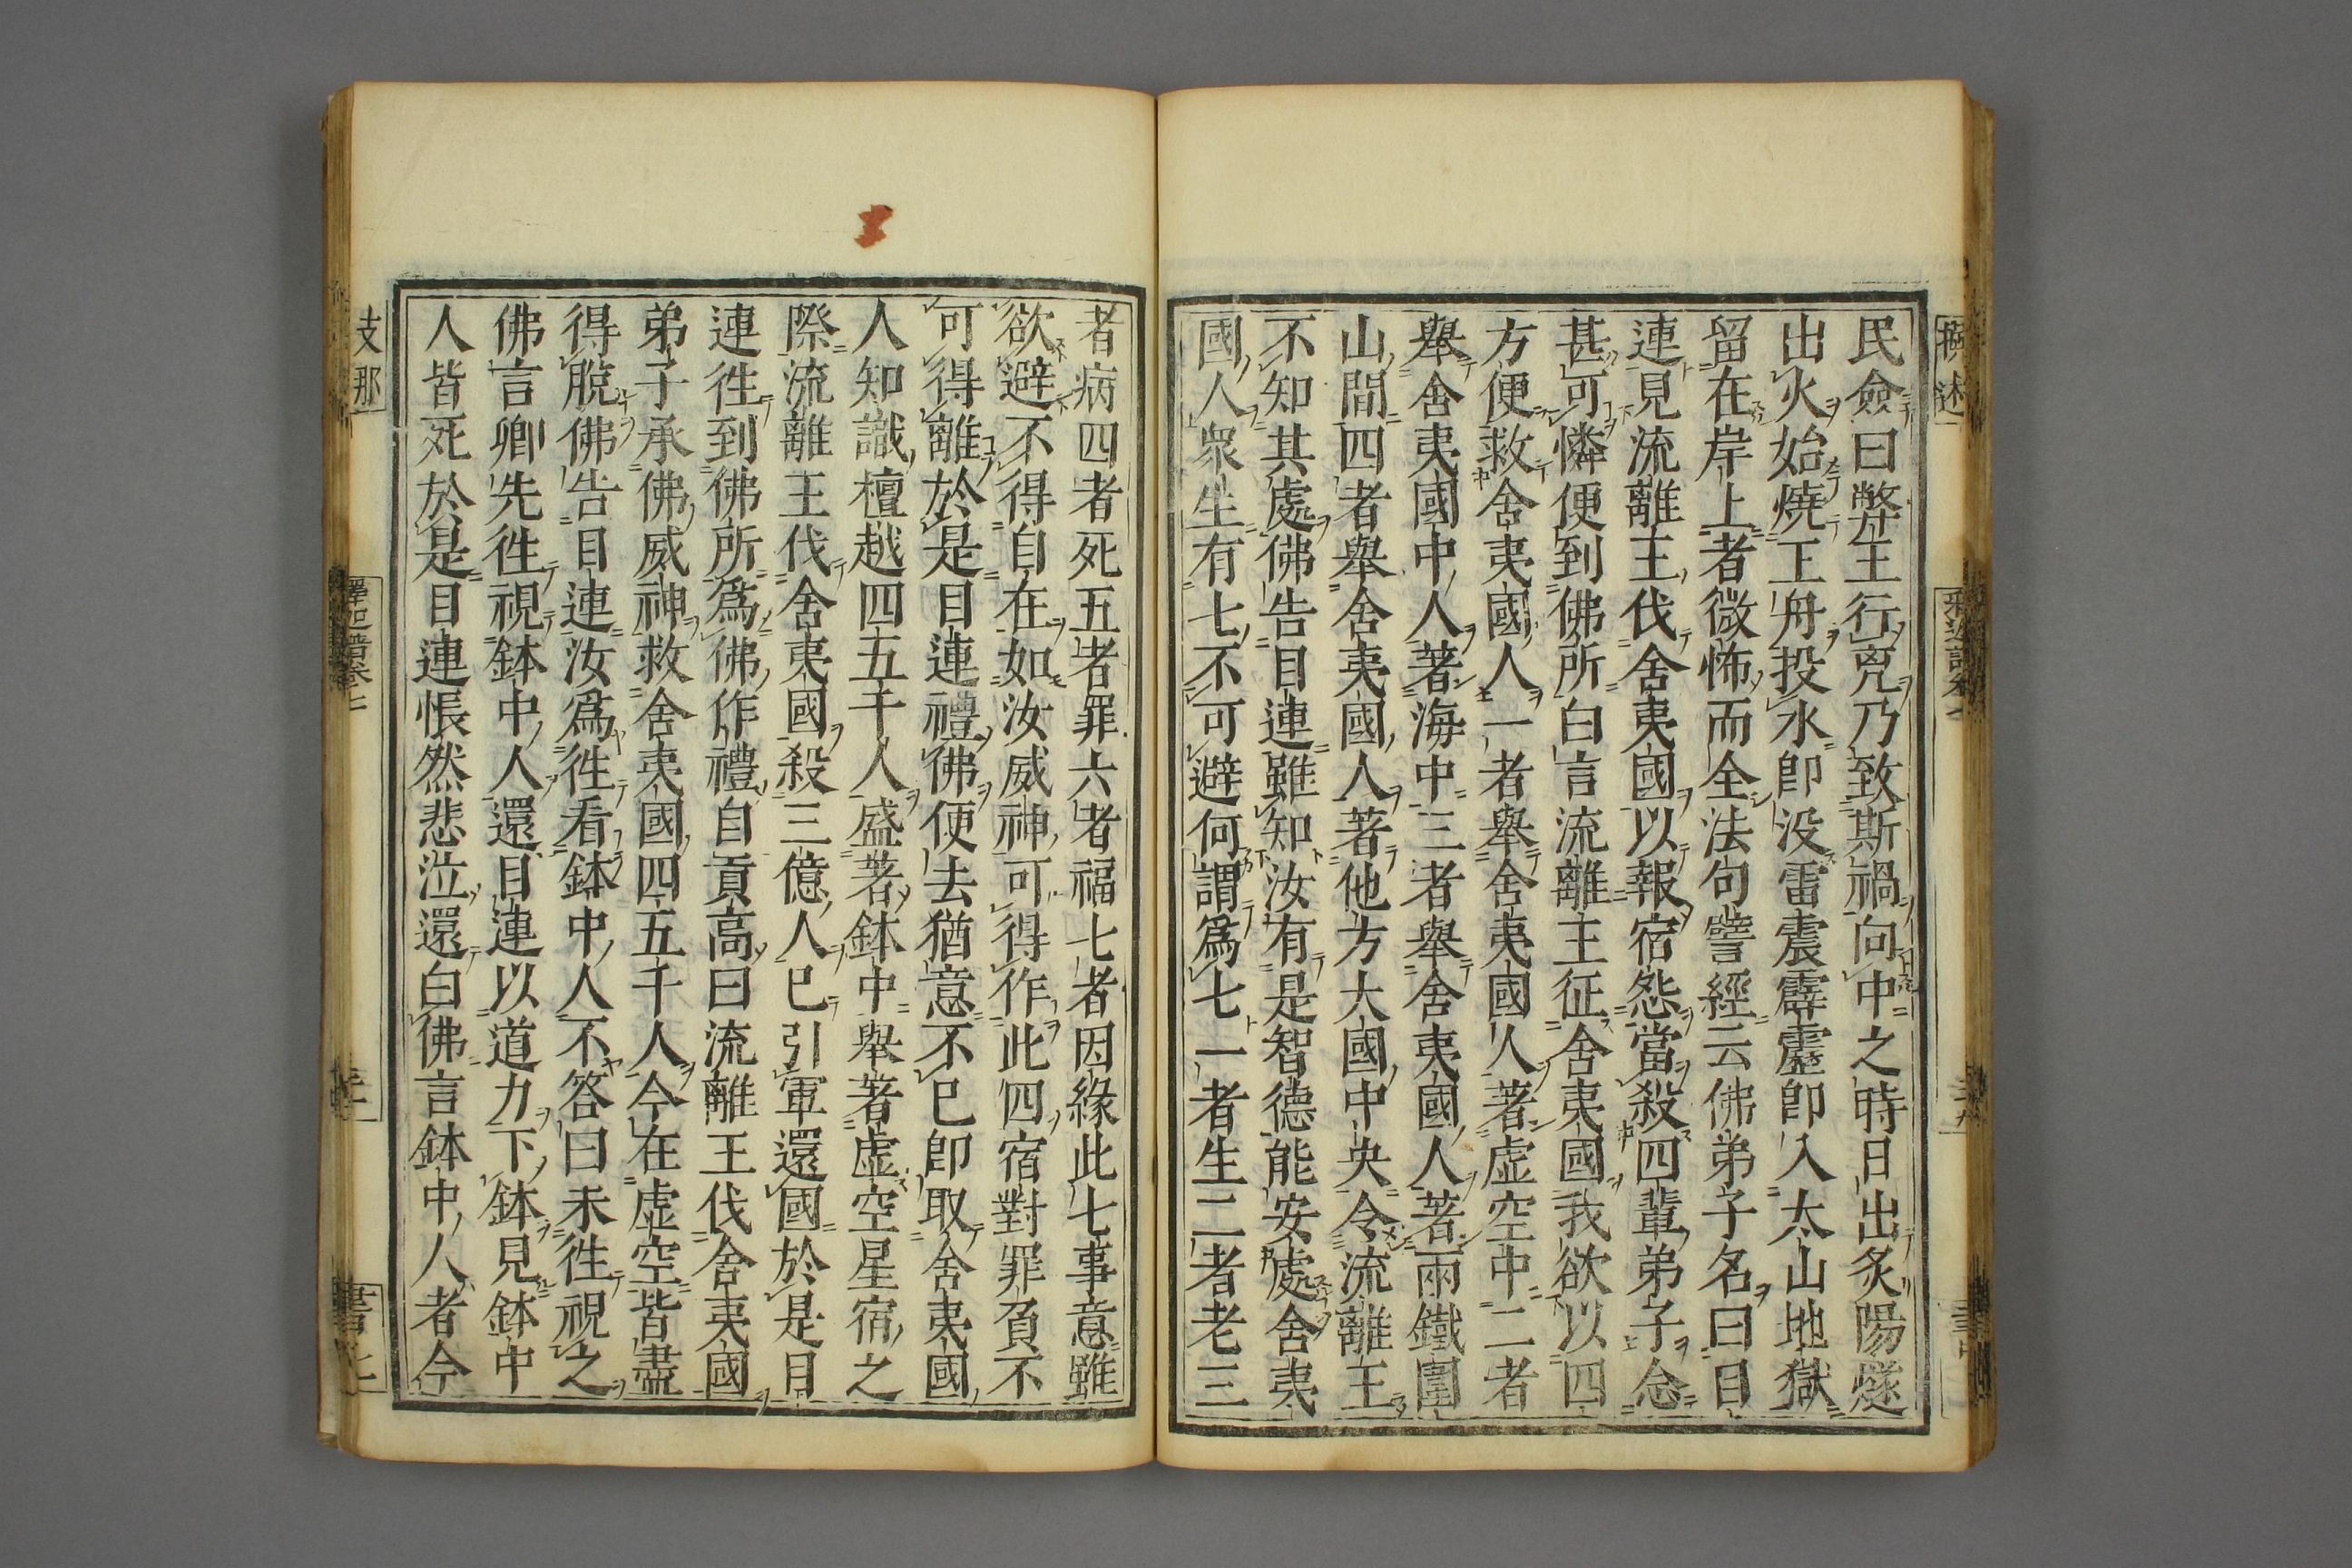 民僉曰弊王行兇乃致斯禍向中之時日出炙陽燧
出火始燒王舟投水即没雷震霹靂即入太山地獄
留在岸上者微怖而全法句譬經云佛弟子名曰目
連見流離王伐舍夷國以報宿怨當殺四輩弟子念
甚可憐便到佛所白言流離王征舍夷國我欲以四
方便救舍夷國人一者舉舍夷國人著虚空中二者
舉舍夷國中人著海中三者舉舍夷國人著兩鐵圍
山間四者舉舍夷國人著他方大國中央令流離王
不知其處佛告目連雖知汝有是智德能安處舍夷
國人衆生有七不可避何謂爲七一者生二者老三
者病四者死五者罪六者福七者因緣此七事意雖
欲避不得自在如汝威神可得作此四宿對罪負不
可得離於是目連禮佛便去猶意不已即取舍夷國
人知識檀越四五千人盛著鉢中舉著虚空星宿之
際流離王伐舍夷國殺三億人已引軍還國於是目
連徃到佛所爲佛作禮自貢高曰流離王伐舍夷國
弟子承佛威神救舍夷國四五千人今在虚空皆盡
得脱佛告目連汝爲徃看鉢中人不答曰未徃視之
佛言卿先徃視鉢中人還目連以道力下鉢見鉢中
人皆死於是目連悵然悲泣還白佛言鉢中人者今
支那